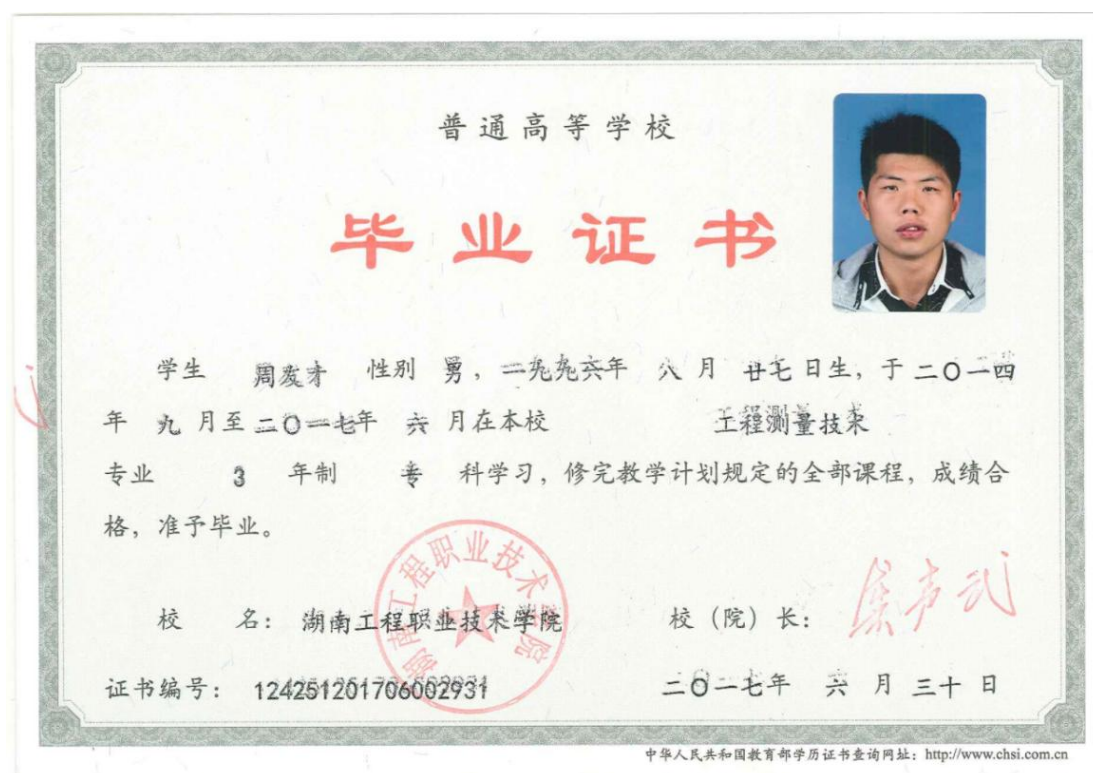 普通高等学校
毕业证书
学生 周发才 性别 男，一九九六年 八 月 廿七 日生，于 二〇一四
年 九 月至 二〇一七年 六 月在本校 工程测量技术
专业 3 年制 专 科学习，修完教学计划规定的全部课程，成绩合
格，准予毕业。
湖南工程职业技术学院
校 名： 湖南工程职业技术学院 校（院）长：
证书编号： 124251201706002931 二〇一七年 六 月 三十 日
中华人民共和国教育部学历证书查询网址：http://www.chsi.com.cn